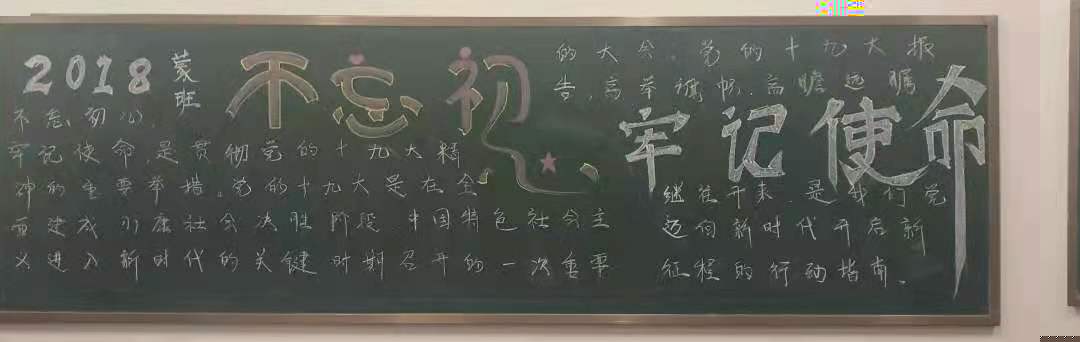 2018 蒙班
不忘初心
牢记使命
不忘初心,
牢记使命,是贯彻党的十九大精
神的重要举措。党的十九大是在全
面建成小康社会决胜阶段 中国特色社会主
义进入新时代的关键时期召开的一次重要
的大会。党的十九大报
告,高举旗帜,高瞻远瞩
继往开来,是我们党
迈向新时代开启新
征程的行动指南。